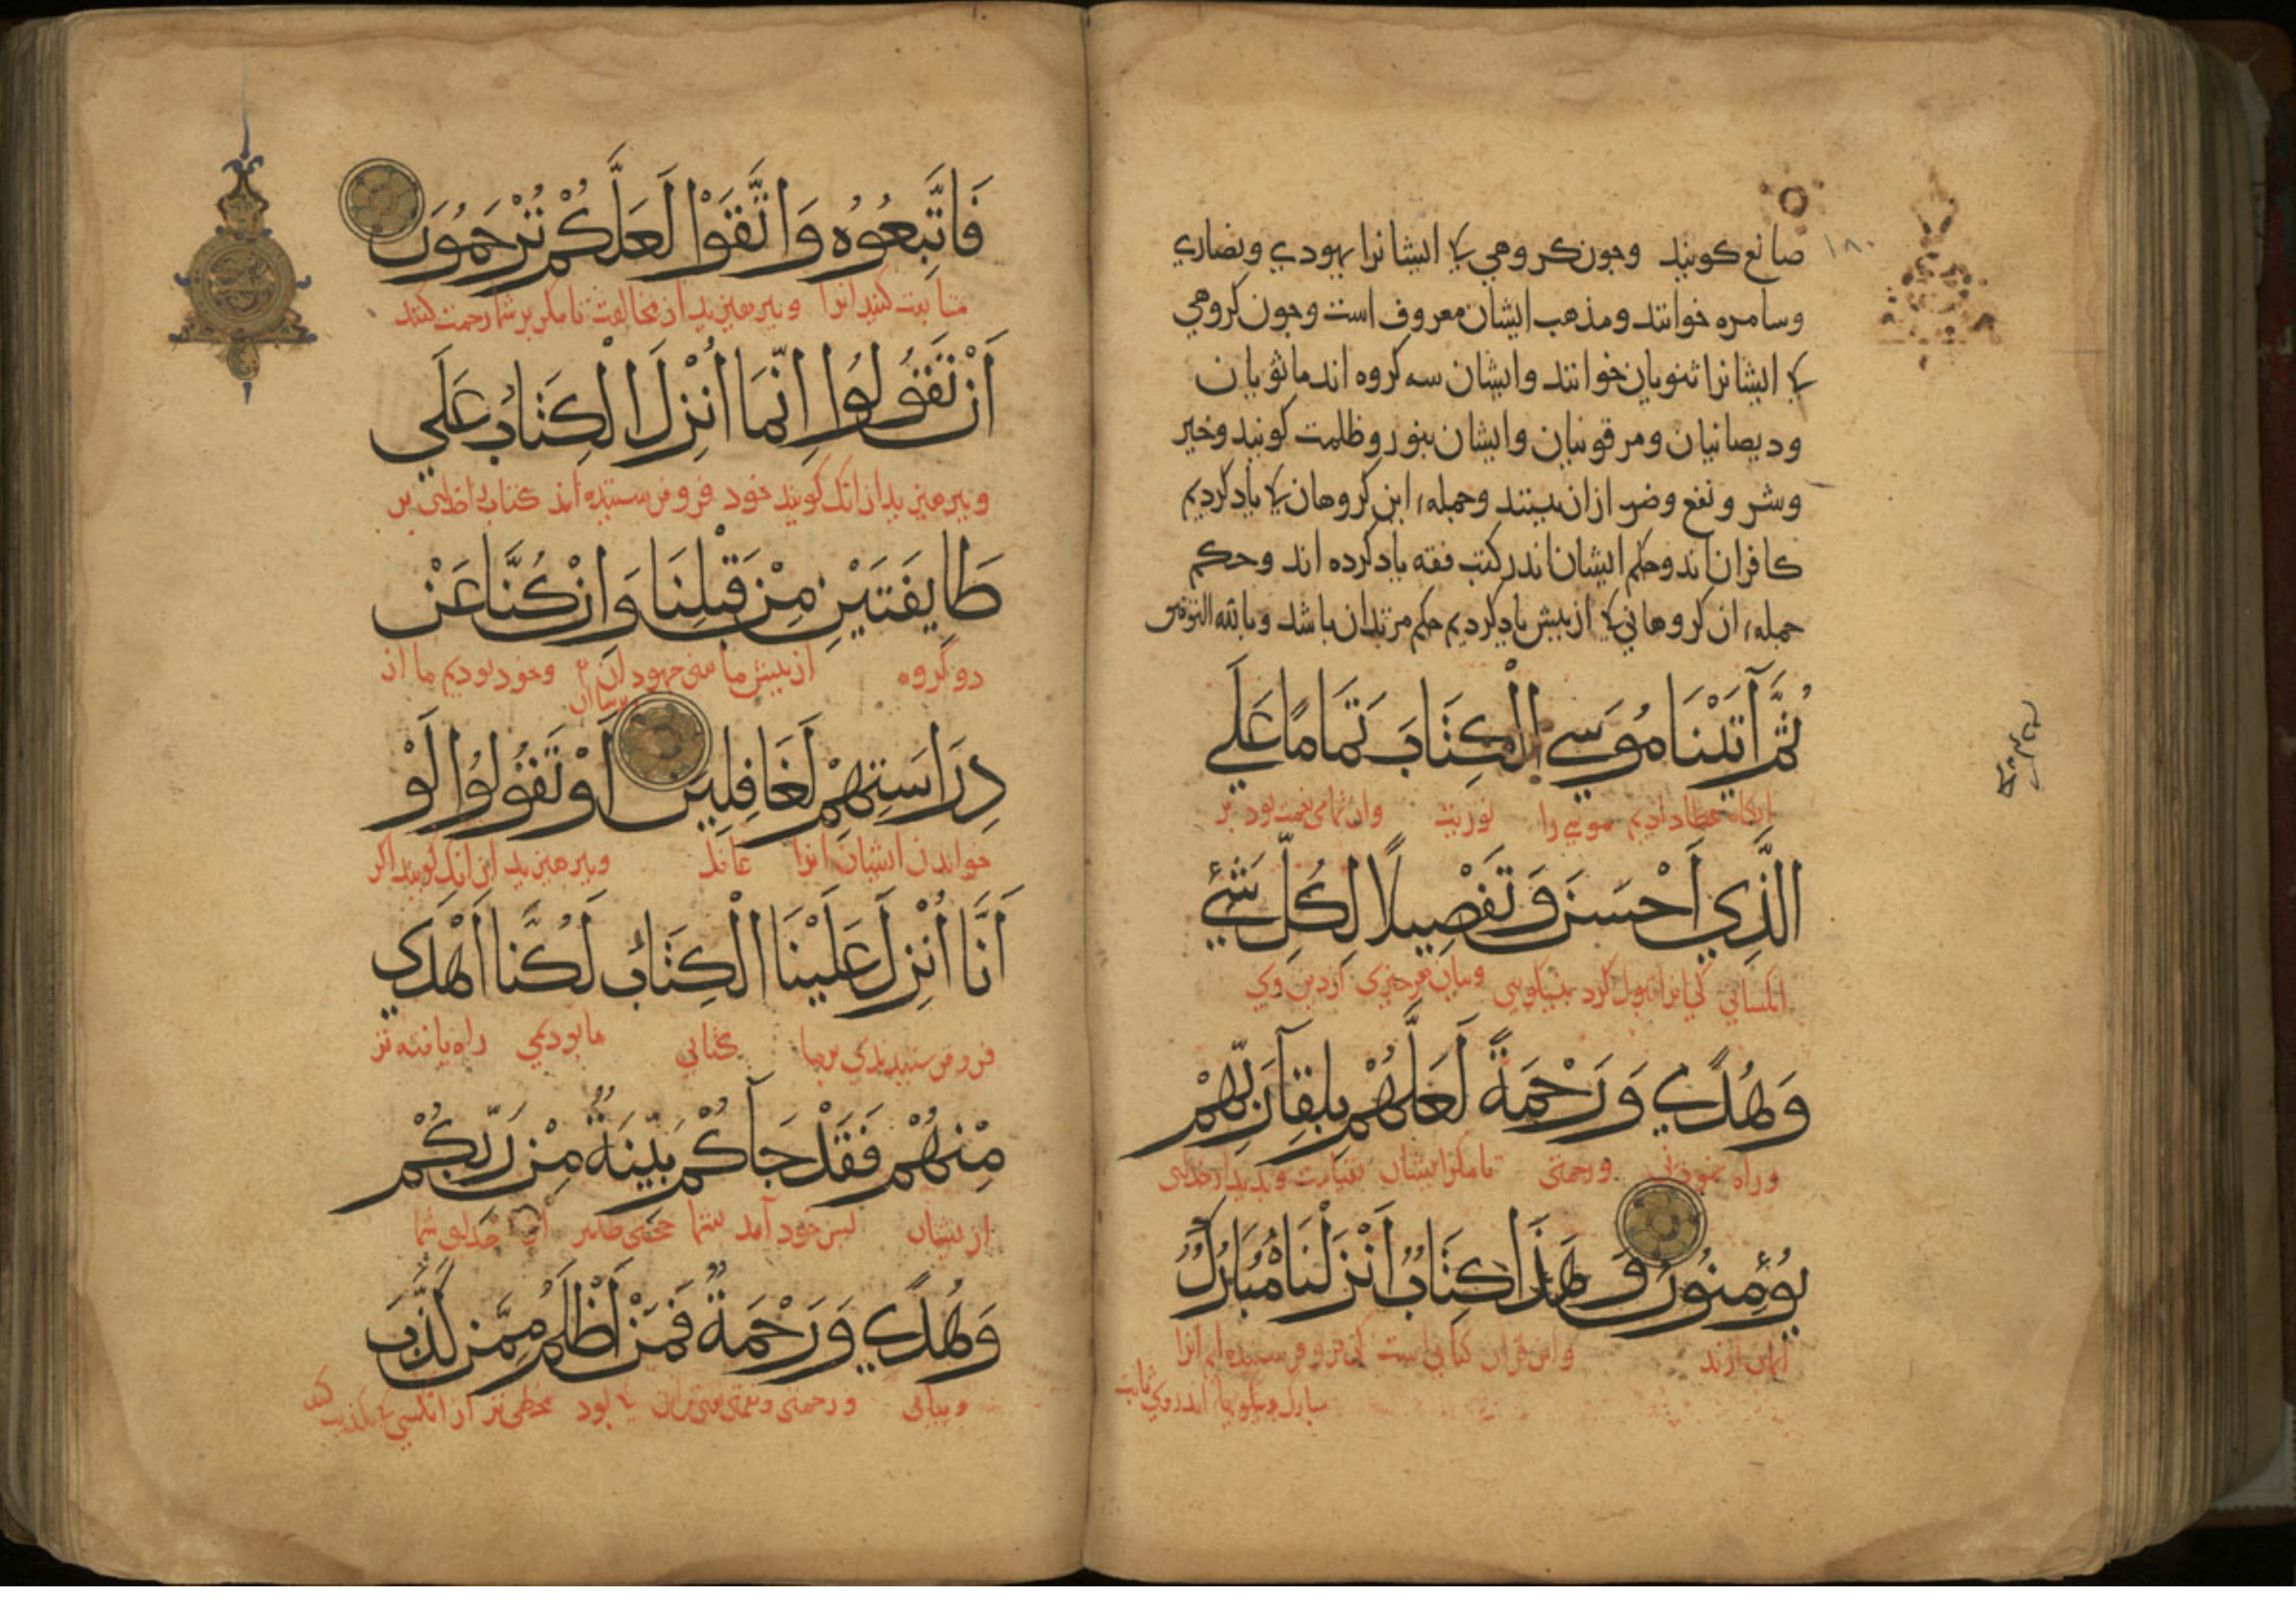 صانع کویند وجون کروهی کی ایشانرا یهودی ونصاری
وسامره خوانند ومذهب ایشان معروف است وجون کروهی
کی ایشانرا ثنویان خوانند وایشان سه کروه اند مانویان
ودیصانیان ومرقونیان وایشان بنور وظلمت کویند وخیر
وشر ونفع وضر ازان بینند وجمله این کروهان کی یاد کردیم
کافران اند وحکم ایشان اندر کتب فقه یاد کرده اند وحکم
جمله ان کروهانی کی از بیش یاد کردیم حکم مرتدان باشد وبالله التوفیق
۱۸۰
ثُمَّ آتَيْنَا مُوسَي الْكِتَابَ تَمَامًا عَلَي
عطا دادیم موسی را توریت وان تمامی نعمت بود بر
الَّذِي أَحْسَنَ وَتَفْصِيلًا لِكُلِّ شَيْءٍ
انکسانی کی انرا قبول کرد بنیکویی وبیان هر جیزی از دین وی
وَهُدًي وَرَحْمَةً لَعَلَّهُمْ بِلِقَآ رَبِّهِمْ
وراه نمودنی ورحمتی تا مکر ایشان
يُؤْمِنُونَ وَهَذَا كِتَابٌ أَنْزَلْنَاهُ مُبَارَكٌ
ایمان ارند واین قران کتابی است کی فرو فرستیده ایم انرا
مبارک اندر وی ثابت
فَاتَّبِعُوهُ وَاتَّقَوْا لَعَلَّكُمْ تُرْحَمُونَ
متابعت کنید انرا وبپرهیزید از مخالفت تا مکر بر شما رحمت کنند
أَنْ تَقُولُوا إِنَّمَا أُنْزِلَ الْكِتَابُ عَلَي
وبپرهیزید از انک کویند خود فرو فرستیده اند کتاب بر
طَايِفَتَيْنِ مِنْ قَبْلِنَا وَإِنْ كُنَّا عَنْ
دو کروه از بیش ما جهودان وخود بودیم ما از
دِرَاسَتِهِمْ لَغَافِلِينَ أَوْ تَقُولُوا لَوْ
خواندن ایشان انرا غافل وبپرهیزید از انک کویند اکر
أَنَّا أُنْزِلَ عَلَيْنَا الْكِتَابُ لَكُنَّا أَهْدَي
فرو فرستیدندی بر ما کتابی ما بودیمی راه یافته تر
مِنْهُمْ فَقَدْ جَآكُمْ بَيِّنَةٌ مِنْ رَبِّكُمْ
از یشان بس خود آمد بشما حجتی ظاهر از خدای شما
وَهُدًي وَرَحْمَةٌ فَمَنْ أَظْلَمُ مِمَّنْ كَذَّبَ
وبیانی ورحمتی کی بود مخطی تر از انکسی کی تکذیب کند